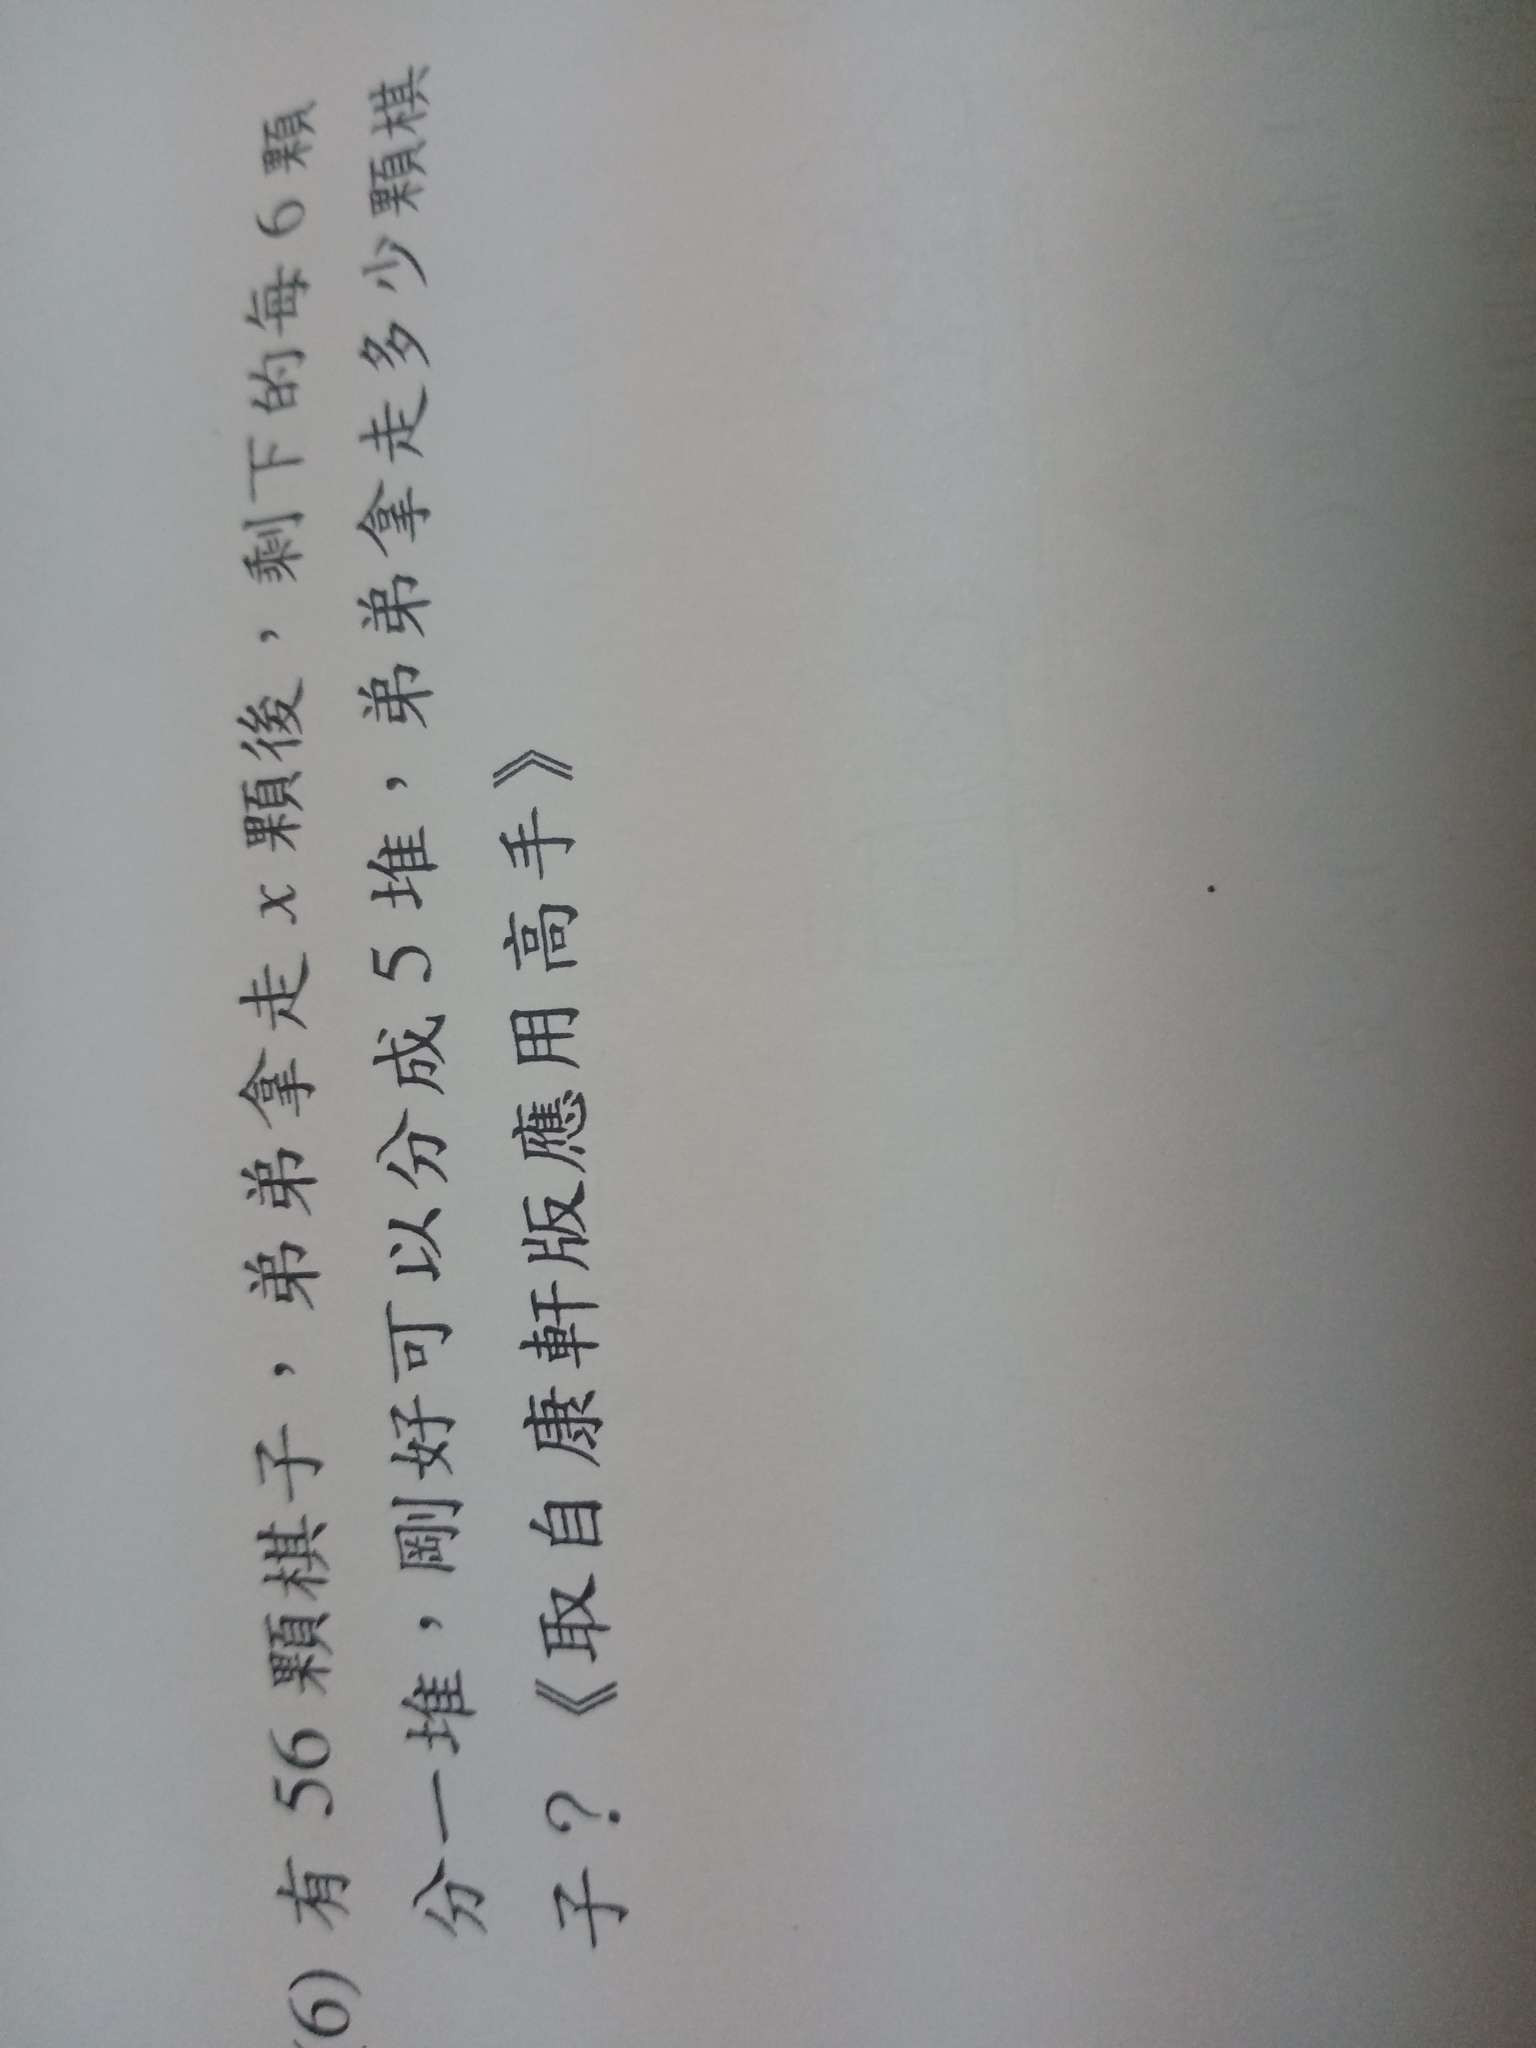 (6) 有 56 顆棋子，弟弟拿走 x 顆後，剩下的每 6 顆
分一堆，剛好可以分成 5 堆，弟弟拿走多少顆棋
子？《取自康軒版應用高手》